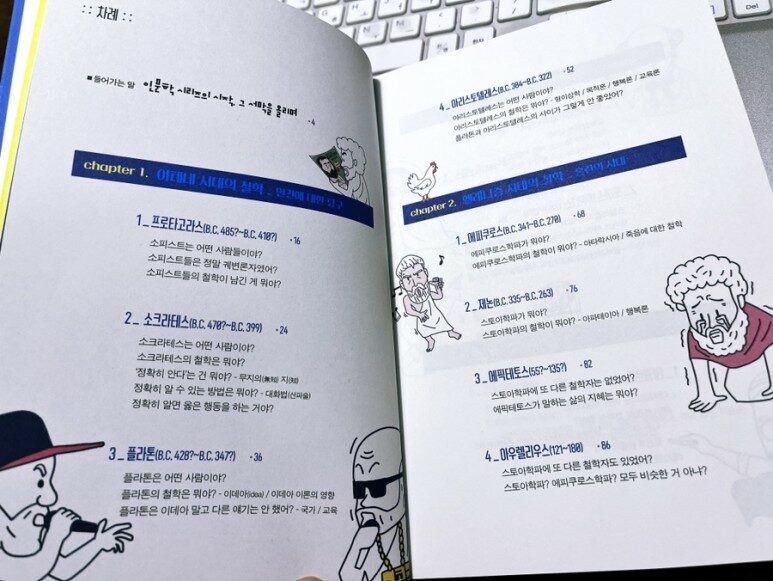 :: 차례 ::
■ 들어가는 말 인문학 시리즈의 시작, 그 서막을 올리며 · 4
chapter 1. 아테네 시대의 철학 _ 인간에 대한 탐구
1_ 프로타고라스(B.C. 485?~B.C. 410?) · 16
소피스트는 어떤 사람들이야?
소피스트들은 정말 궤변론자였어?
소피스트들의 철학이 남긴 게 뭐야?
2_ 소크라테스(B.C. 470?~B.C. 399) · 24
소크라테스는 어떤 사람이야?
소크라테스의 철학은 뭐야?
'정확히 안다'는 건 뭐야? - 무지의(無知) 지(知)
정확히 알 수 있는 방법은 뭐야? - 대화법(산파술)
정확히 알면 옳은 행동을 하는 거야?
3_ 플라톤(B.C. 428?~B.C. 347?) · 36
플라톤은 어떤 사람이야?
플라톤의 철학은 뭐야? - 이데아(idea) / 이데아 이론의 영향
플라톤은 이데아 말고 다른 얘기는 안 했어? - 국가 / 교육
4_ 아리스토텔레스(B.C. 384~B.C. 322) · 52
아리스토텔레스는 어떤 사람이야?
아리스토텔레스의 철학은 뭐야? - 형이상학 / 목적론 / 행복론 / 교육론
플라톤과 아리스토텔레스의 사이가 그렇게 안 좋았어?
chapter 2. 헬레니즘 시대의 철학 _ 혼란의 시대
1_ 에피쿠로스(B.C. 341~B.C. 270) · 68
에피쿠로스학파가 뭐야?
에피쿠로스학파의 철학이 뭐야? - 아타락시아 / 죽음에 대한 철학
2_ 제논(B.C. 335~B.C. 263) · 76
스토아학파가 뭐야?
스토아학파의 철학이 뭐야? - 아파테이아 / 행복론
3_ 에픽테토스(55?~135?) · 82
스토아학파에 또 다른 철학자는 없었어?
에픽테토스가 말하는 삶의 지혜는 뭐야?
4_ 아우렐리우스(121~180) · 86
스토아학파에 또 다른 철학자도 있었어?
스토아학파? 에피쿠로스학파? 모두 비슷한 거 아냐?